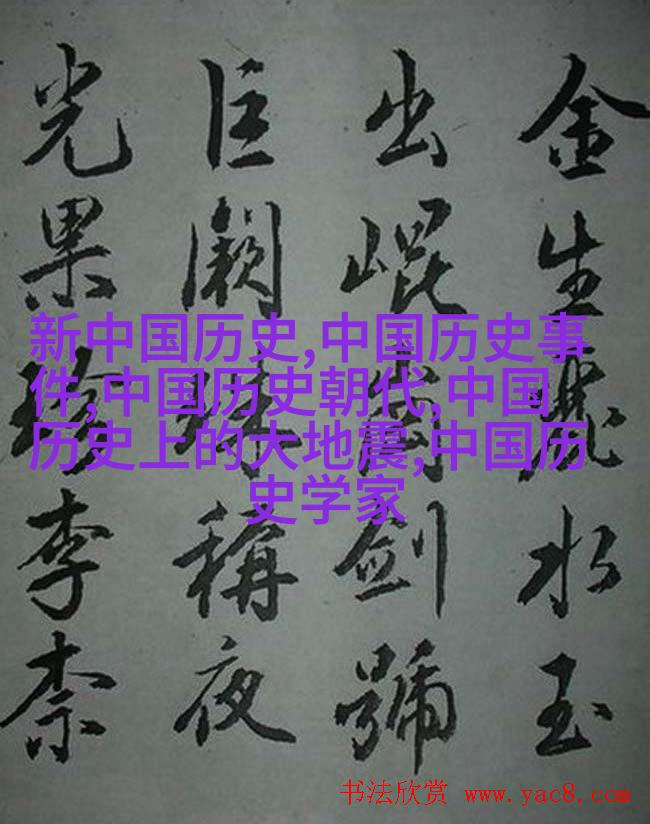 金生麗水玉
出崐崗劍號
巨闕珠稱夜
光果珍李柰
新中国历史,中国历史事
件,中国历史朝代,中国
历史上的大地震,中国历
史学家
书法欣赏 www.yac8.com